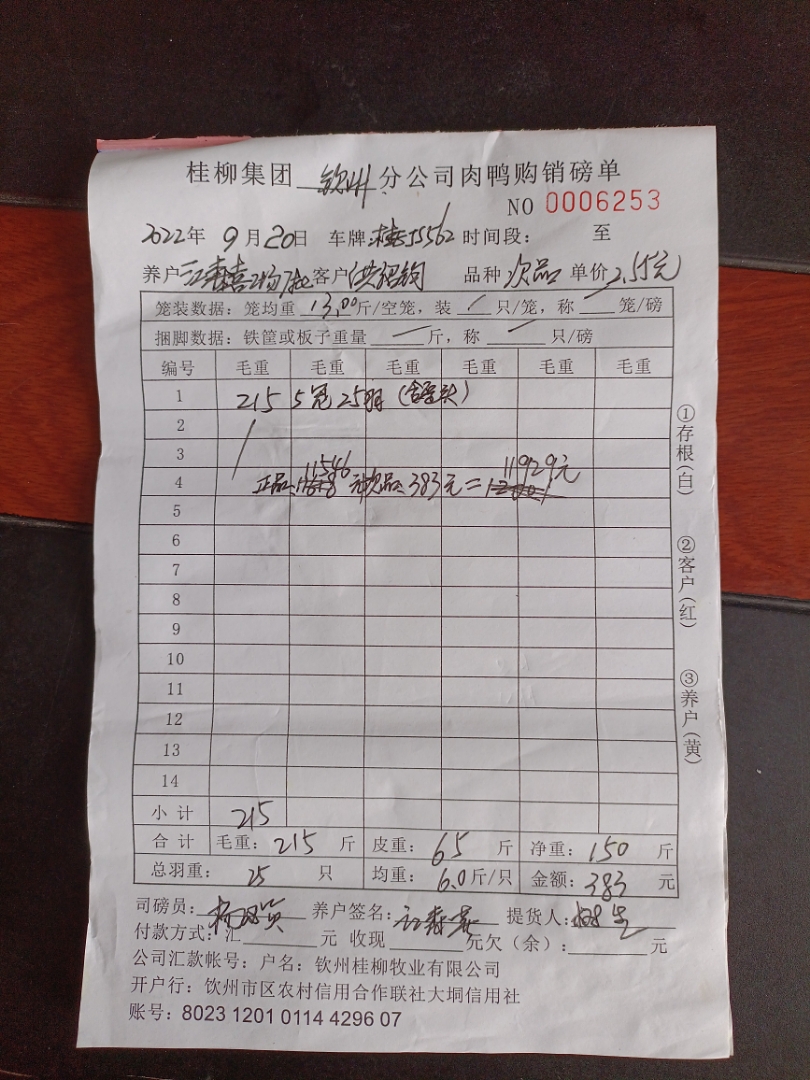 桂柳集团 钦州 分公司肉鸭购销磅单
NO 0006253
2022年 9月20日 车牌: 桂J5562 时间段: 至
养户 客户 品种 次品 单价 2.55元
笼装数据: 笼均重 13.00 斤/空笼, 装 / 只/笼, 称 / 笼/磅
捆脚数据: 铁筐或板子重量 / 斤, 称 / 只/磅
编号 毛重 毛重 毛重 毛重 毛重 毛重
1 215 5冠 25羽
2
3
4 正品: 11546 元 次品: 383元 = 11929元
5
6
7
8
9
10
11
12
13
14
小计 215
合计 毛重: 215 斤 皮重: 65 斤 净重: 150 斤
总羽重: 25 只 均重: 6.0斤/只 金额: 383 元
司磅员: 养户签名: 提货人:
付款方式: 汇 元 收现 元欠(余): 元
公司汇款帐号: 户名: 钦州桂柳牧业有限公司
开户行: 钦州市区农村信用合作联社大垌信用社
账号: 8023 1201 0114 4296 07
①存根(白)
②客户(红)
③养户(黄)